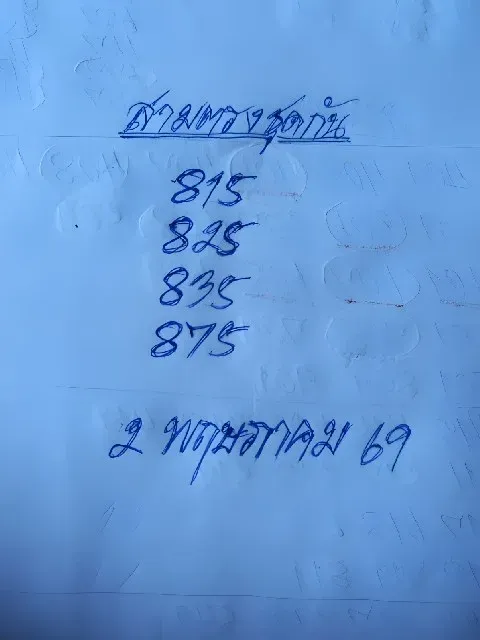 สามตรงชุดกัน
815
825
835
875
2 พฤษภาคม 69